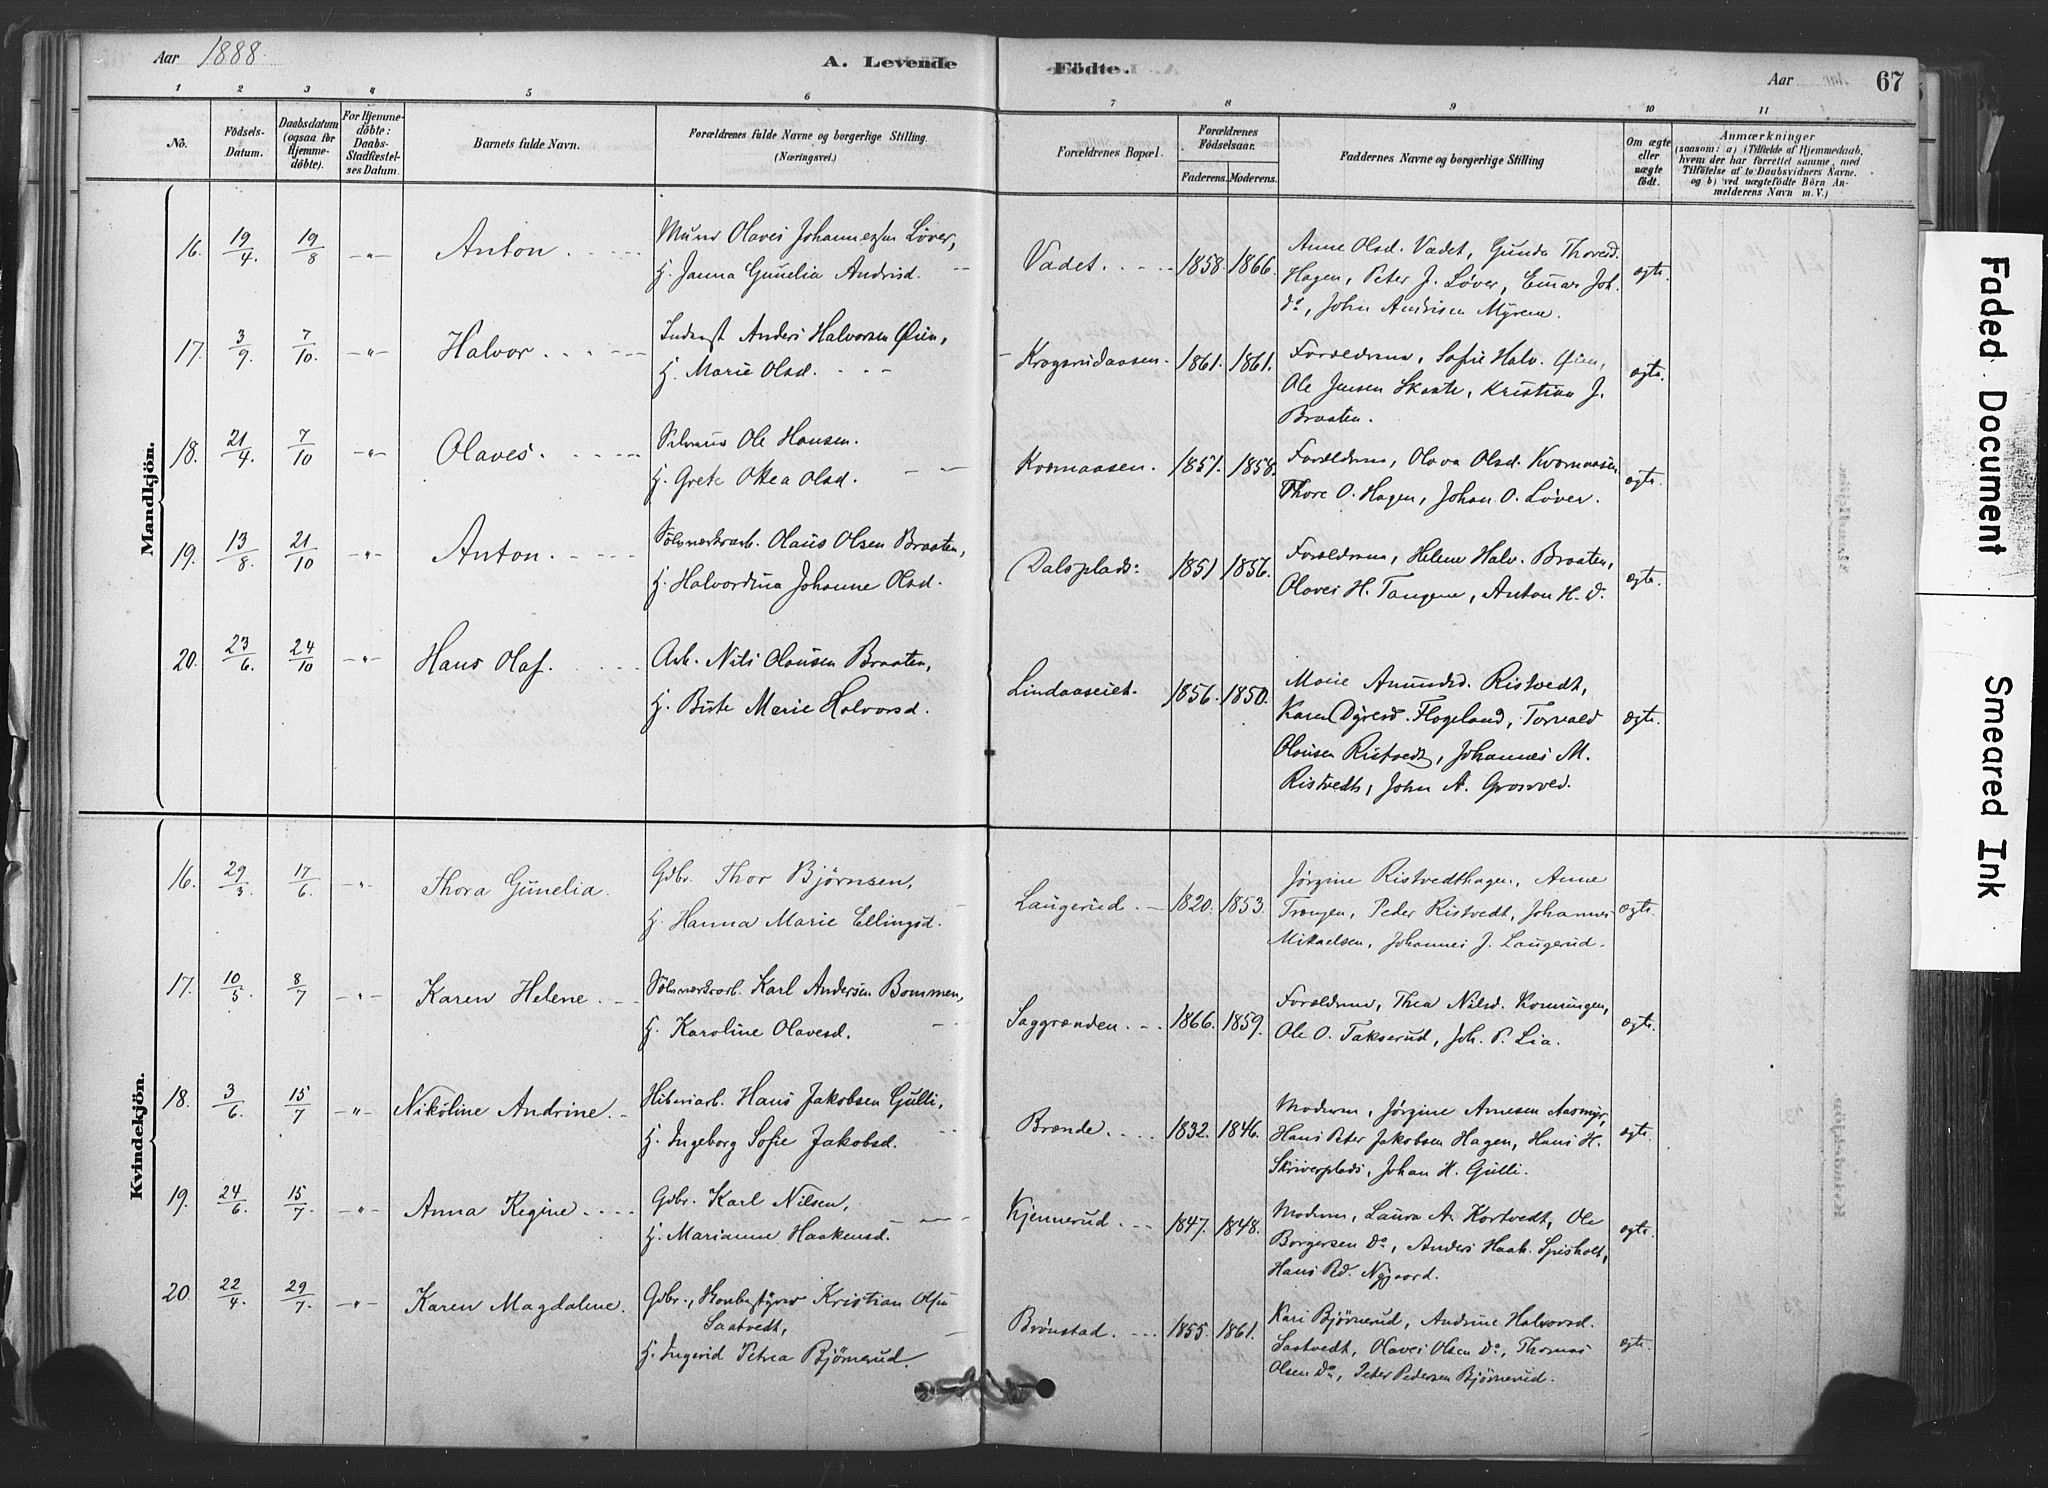 Aar 1888.
A. Levende Födte.
Aar 67
1 2 3 4 5 6 7 8 9 10 11
No.
Födsels-Datum.
Daabsdatum (ogsaa for Hjemmedöbte).
For Hjemmedöbte: Daabs-Stadfæstelses Datum.
Barnets fulde Navn.
Forældrenes fulde Navne og borgerlige Stilling. (Næringsvei.)
Forældrenes Bopæl.
Forældrenes Födselsaar.
Faderens. Moderens.
Faddernes Navne og borgerlige Stilling
Om ægte eller uægte födt.
Anmærkninger
(saasom: a) i Tilfælde af Hjemmedaab, hvem der har forrettet samme, med Tilföielse af to Daabsvidners Navne. og b) ved uægtefödte Börn Anmelderens Navn m. V.)
Mandkjön.
16. 19/4. 19/8 -„- Anton
Murer Olaves Johannessen Løver,
H. Janna Gunelia Andrisd.
Vadet. 1858. 1866.
Anne Olsd. Vadet, Gunda Thoresd.
Hagen, Peter J. Løver, Einar Joh.
do, John Andrisen Myrene.
ægte.
17. 3/9. 7/10. -„- Halvor
Inderst Anders Halvorsen Øien,
H. Marie Olsd.
Krogsrudaasen. 1861. 1861.
Forældrene, Sofie Halv. Øien,
Ole Jensen Skaate, Kristian J.
Braaten.
ægte.
18. 21/4. 7/10 -„- Olaves.
Ole Hansen.
H. Grete Ottea Olsd.
Kvernaasen. 1857. 1858.
Forældrene, Olava Olsd. Kvernaasen
Thore O. Hagen, Johan O. Løver.
ægte.
19. 13/8. 21/10 -„- Anton.
Sølvværksarb. Olaus Olsen Braaten,
H. Halvordina Johanne Olsd.
Dalsplads. 1851 1856.
Forældrene, Helene Halv. Braaten,
Olaves H. Tangene, Anton H. do.
ægte.
20. 23/6. 24/10 -„- Hans Olaf.
Arb. Nils Olausen Braaten,
H. Birte Marie Halvorsd.
Lindaaseiet. 1856. 1850.
Marie Amundsd. Ristvedt,
Karen Dyresd. Flogeland, Torvald
Olausen Ristvedt, Johannes M.
Ristvedt, John A. Grosved.
ægte.
Kvindekjön.
16. 29/3. 17/6. -„- Thora Gunelia.
Gdbr. Thor Bjørnsen,
H. Hanna Marie Ellingsd.
Laugerud. 1820. 1853.
Jørgine Ristvedthagen, Anne
Trangen, Peder Ristvedt, Johannes
Mikaelsen, Johannes J. Laugerud.
ægte.
17. 10/5. 8/7 -„- Karen Helene.
Sølvværksarb. Karl Andersen Bommen,
H. Karoline Olavesd.
Saggrænden. 1866. 1859.
Forældrene, Thea Nilsd. Korningen,
Ole O. Takserud, Joh. P. Lia.
ægte.
18. 3/6. 15/7 -„- Nikoline Andrine.
Hiberiarb. Hans Jakobsen Gulli,
H. Ingeborg Sofie Jakobsd.
Brænde. 1832. 1846.
Moderen, Jørgine Arnesen Aasmyr,
Hans Peter Jakobsen Hagen, Hans H.
Skriverplads, Johan H. Gulli.
ægte.
19. 24/6. 15/7. -„- Anna Regine.
Gdbr. Karl Nilsen,
H. Marianne Haakensd.
Kjennerud. 1847. 1848.
Moderen, Laura A. Kortvedt, Ole
Borgersen do, Anders Haak. Spisholt,
Hans Ped. Nygaard.
ægte.
20. 22/4. 29/7. -„- Karen Magdalene.
Gdbr., Kristian Olsen
Saatvedt,
H. Ingerid Petrea Bjørnerud.
Brønstad. 1855. 1861.
Kari Bjørnerud, Andrine Halvorsd.
Saatvedt, Olaves Olsen do, Thomas
Olsen do, Peter Pedersen Bjørnerud.
ægte.
Faded Document
Smeared Ink